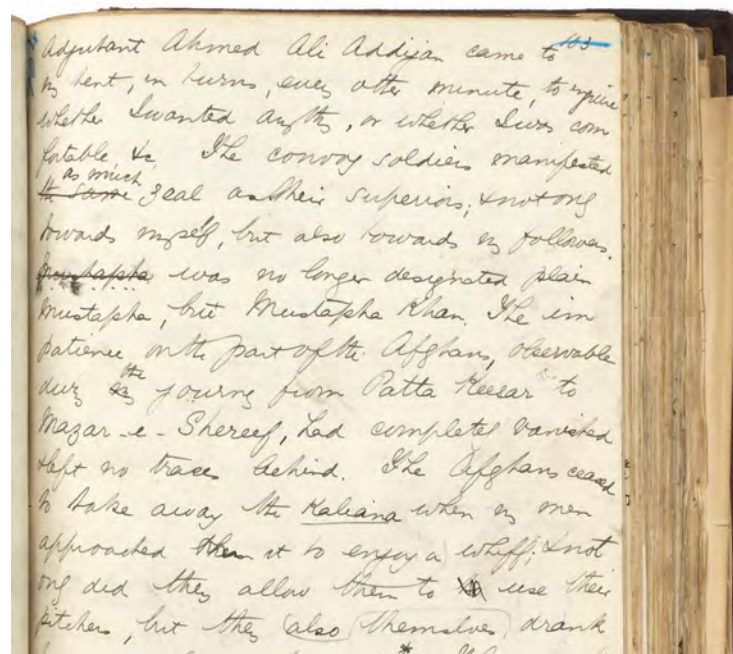 103
Adjutant Ahmed Ali Addijan came to
my tent, in turns, every other minute, to enquire
whether I wanted anythg, or whether I was com
fortable, &c. The convoy soldiers manifested
as much
the same zeal as their superiors; & not ony
towards myself, but also towards my followers.
Moustapha was no longer designated plain
Mustapha, but Mustapha Khan. The im
patience on the part of the Afghans, observable
durg my the journey from Patta Keesar to
Mazar-e-Shereef, had completely vanished
& left no traces behind. The Afghans ceased
to take away the Kaliana when my men
approached them it to enjoy a whiff; & not
ony did they allow them to use their
pitchers, but they (also) (themselves) drank